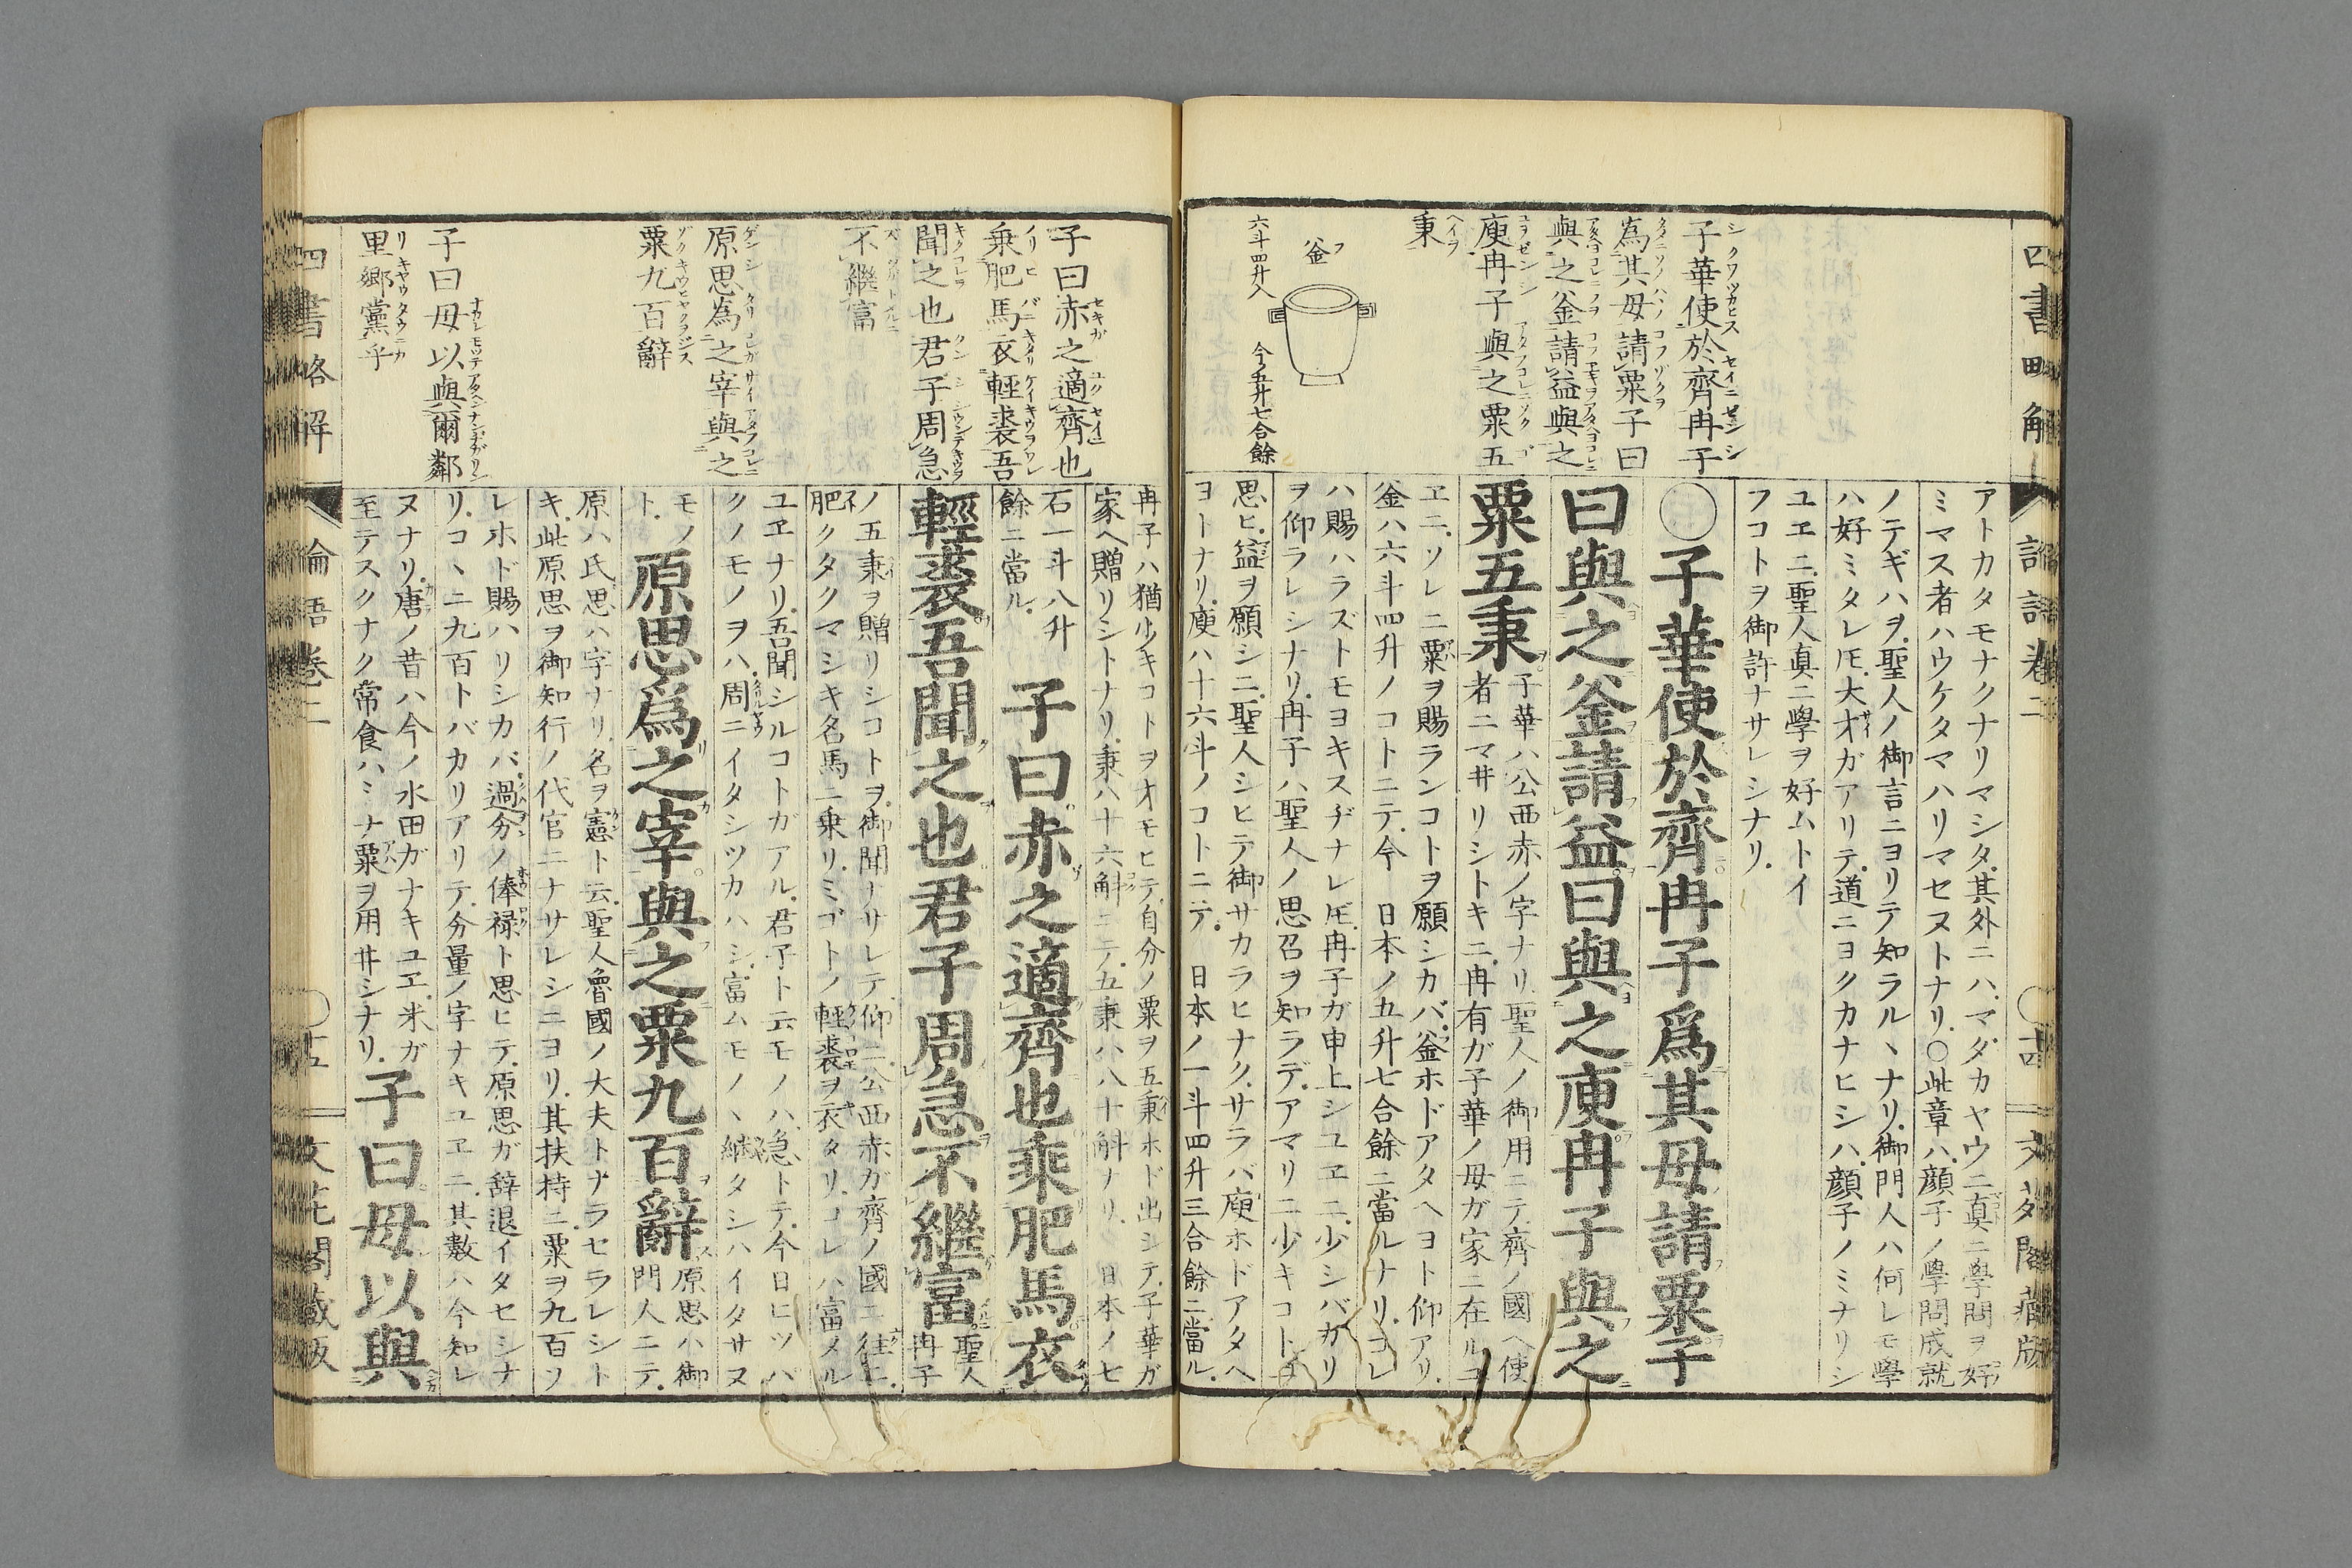 四書略解
論語卷二
〇十四
文花閣藏版
子華使於齊冉子
シクワツカヒスセイニゼンシ
為其母請粟子曰
タメニソノハヽノコフゾクヲ
與之釜請益與之
庾冉子與之粟五
秉
ヘイヲ
釜
フ
六斗四升入
今ノ五升七合餘
アトカタモナクナリマシタ.其外ニハ.マダカヤウニ真ニ學問ヲ好
ミマス者ハウケタマハリマセヌトナリ.〇此章ハ.顔子ノ學問成就
ノテギハヲ.聖人ノ御言ニヨリテ知ラルヽナリ.御門人ハ何レモ學
ハ好ミタレ𪜈.大才ガアリテ.道ニヨクカナヒシハ.顔子ノミナリシ
ユエニ.聖人真ニ學ヲ好ムトイ
フコトヲ御許ナサレシナリ.
〇子華使於齊冉子爲其母請粟子
曰與之釜請益曰與之庾冉子與之
粟五秉
子華ハ公西赤ノ字ナリ.聖人ノ御用ニテ.齊ノ國ヘ使
者ニマヰリシトキニ.冉有ガ子華ノ母ガ家ニ在ルユ
ヱニ.ソレニ粟ヲ賜ランコトヲ願シカバ.釜ホドアタヘヨト仰アリ.
釜ハ六斗四升ノコトニテ.今 日本ノ五升七合餘ニ當ルナリ.コレ
ハ賜ハラズトモヨキスヂナレ𪜈.冉子ガ申上シユエニ.少シバカリ
ヲ仰ラレシナリ.冉子ハ聖人ノ思召ヲ知ラデ.アマリニ少キコトヨ
思ヒ.益ヲ願シニ.聖人シヒテ御サカラヒナク.サラバ庾ホドアタヘ
ヨトナリ.庾ハ十六斗ノコトニテ. 日本ノ一斗四升三合餘ニ當ル.
子曰赤之適齊也
乘肥馬衣輕裘吾
聞之也君子周急
不繼富
原思為之宰與之
粟九百辭
子曰母以與爾鄰
里郷黨乎
リキヤウタウニカ
冉子ハ猶少キコトヲオモヒテ.自分ノ粟ヲ五秉ホド出シテ.子華ガ
家ヘ贈リシトナリ.秉ハ十六斛ニテ.五秉ハ八十斛ナリ. 日本ノ七
石一斗八升
餘ニ當ル.
子曰赤之適齊也乘肥馬衣
輕裘吾聞之也君子周急不繼富
聖人
冉子
ノ五秉ヲ贈リシコトヲ.御聞ナサレテ.仰ニ.公西赤ガ齊ノ國ニ往ニ.
肥タクマシキ名馬ニ乘リ.ミゴトノ輕裘ヲ衣タリ.コレハ富メル
ユヱナリ.吾聞シルコトガアル.君子ト云モノハ.急トテ.今日ヒツパ.
クノモノヲハ.周ニイタシツカハシ.富ムモノヽ継タシハイタサヌ
モノ
ト.
原思爲之宰與之粟九百辭
原思ハ御
門人ニテ.
原ハ氏.思ハ字ナリ.名ヲ憲ト云.聖人魯國ノ大夫トナラセラレシト
キ.此原思ヲ御知行ノ代官ニナサレシニヨリ.其扶持ニ.粟ヲ九百ソ
レホド賜ハリシカバ.過分ノ俸禄ト思ヒテ.原思ガ辞退イタセシナ
リ.コヽニ九百トバカリアリテ.分量ノ字ナキユエニ.其數ハ今知レ
ヌナリ.唐ノ昔ハ今ノ水田ガナキユエ.米ガ
至テスクナク常食ハミナ粟ヲ用ヰシナリ.
子曰母以與
四書略解
論語卷二
〇十五
文花閣藏版